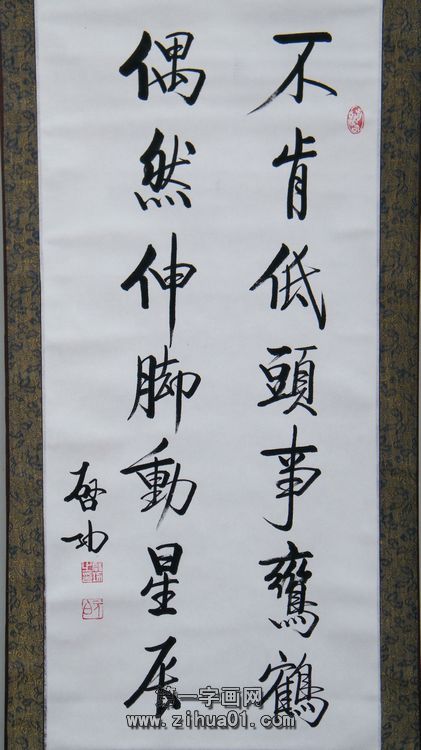 不肯低頭事鸞鶴
偶然伸脚動星辰
啓功
第一字画网
www.zihua01.com